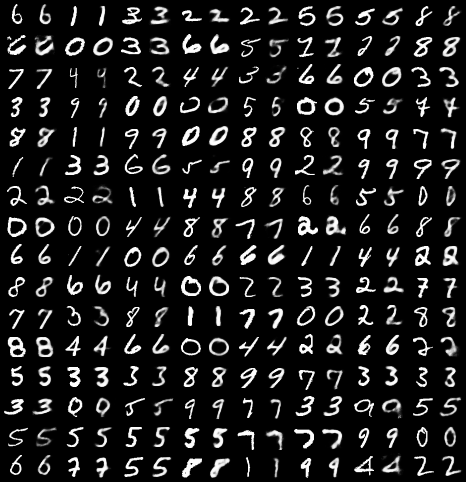 6 6 1 1 3 3 2 2 2 2 5 5 5 5 8 8
6 6 0 0 3 3 6 6 5 5 1 1 2 2 8 8
7 7 4 4 2 2 4 4 3 3 6 6 0 0 3 3
3 3 9 9 0 0 0 0 5 5 0 0 5 5 7 7
8 8 1 1 9 9 0 0 8 8 8 8 9 9 7 7
1 1 3 3 6 6 5 5 9 9 2 2 9 9 9 9
2 2 2 2 1 1 4 4 8 8 6 6 5 5 0 0
0 0 0 0 4 4 8 8 7 7 2 2 6 6 8 8
6 6 1 1 0 0 6 6 6 6 1 1 4 4 2 2
8 8 6 6 4 4 0 0 2 2 3 3 2 2 7 7
7 7 3 3 8 8 1 1 7 7 0 0 2 2 8 8
8 8 4 4 6 6 0 0 4 4 2 2 6 6 2 2
5 5 3 3 3 3 8 8 9 9 7 7 3 3 3 3
3 3 0 0 5 5 9 9 7 7 3 3 9 9 5 5
5 5 5 5 5 5 5 5 7 7 7 7 9 9 0 0
6 6 7 7 5 5 8 8 1 1 9 9 4 4 2 2